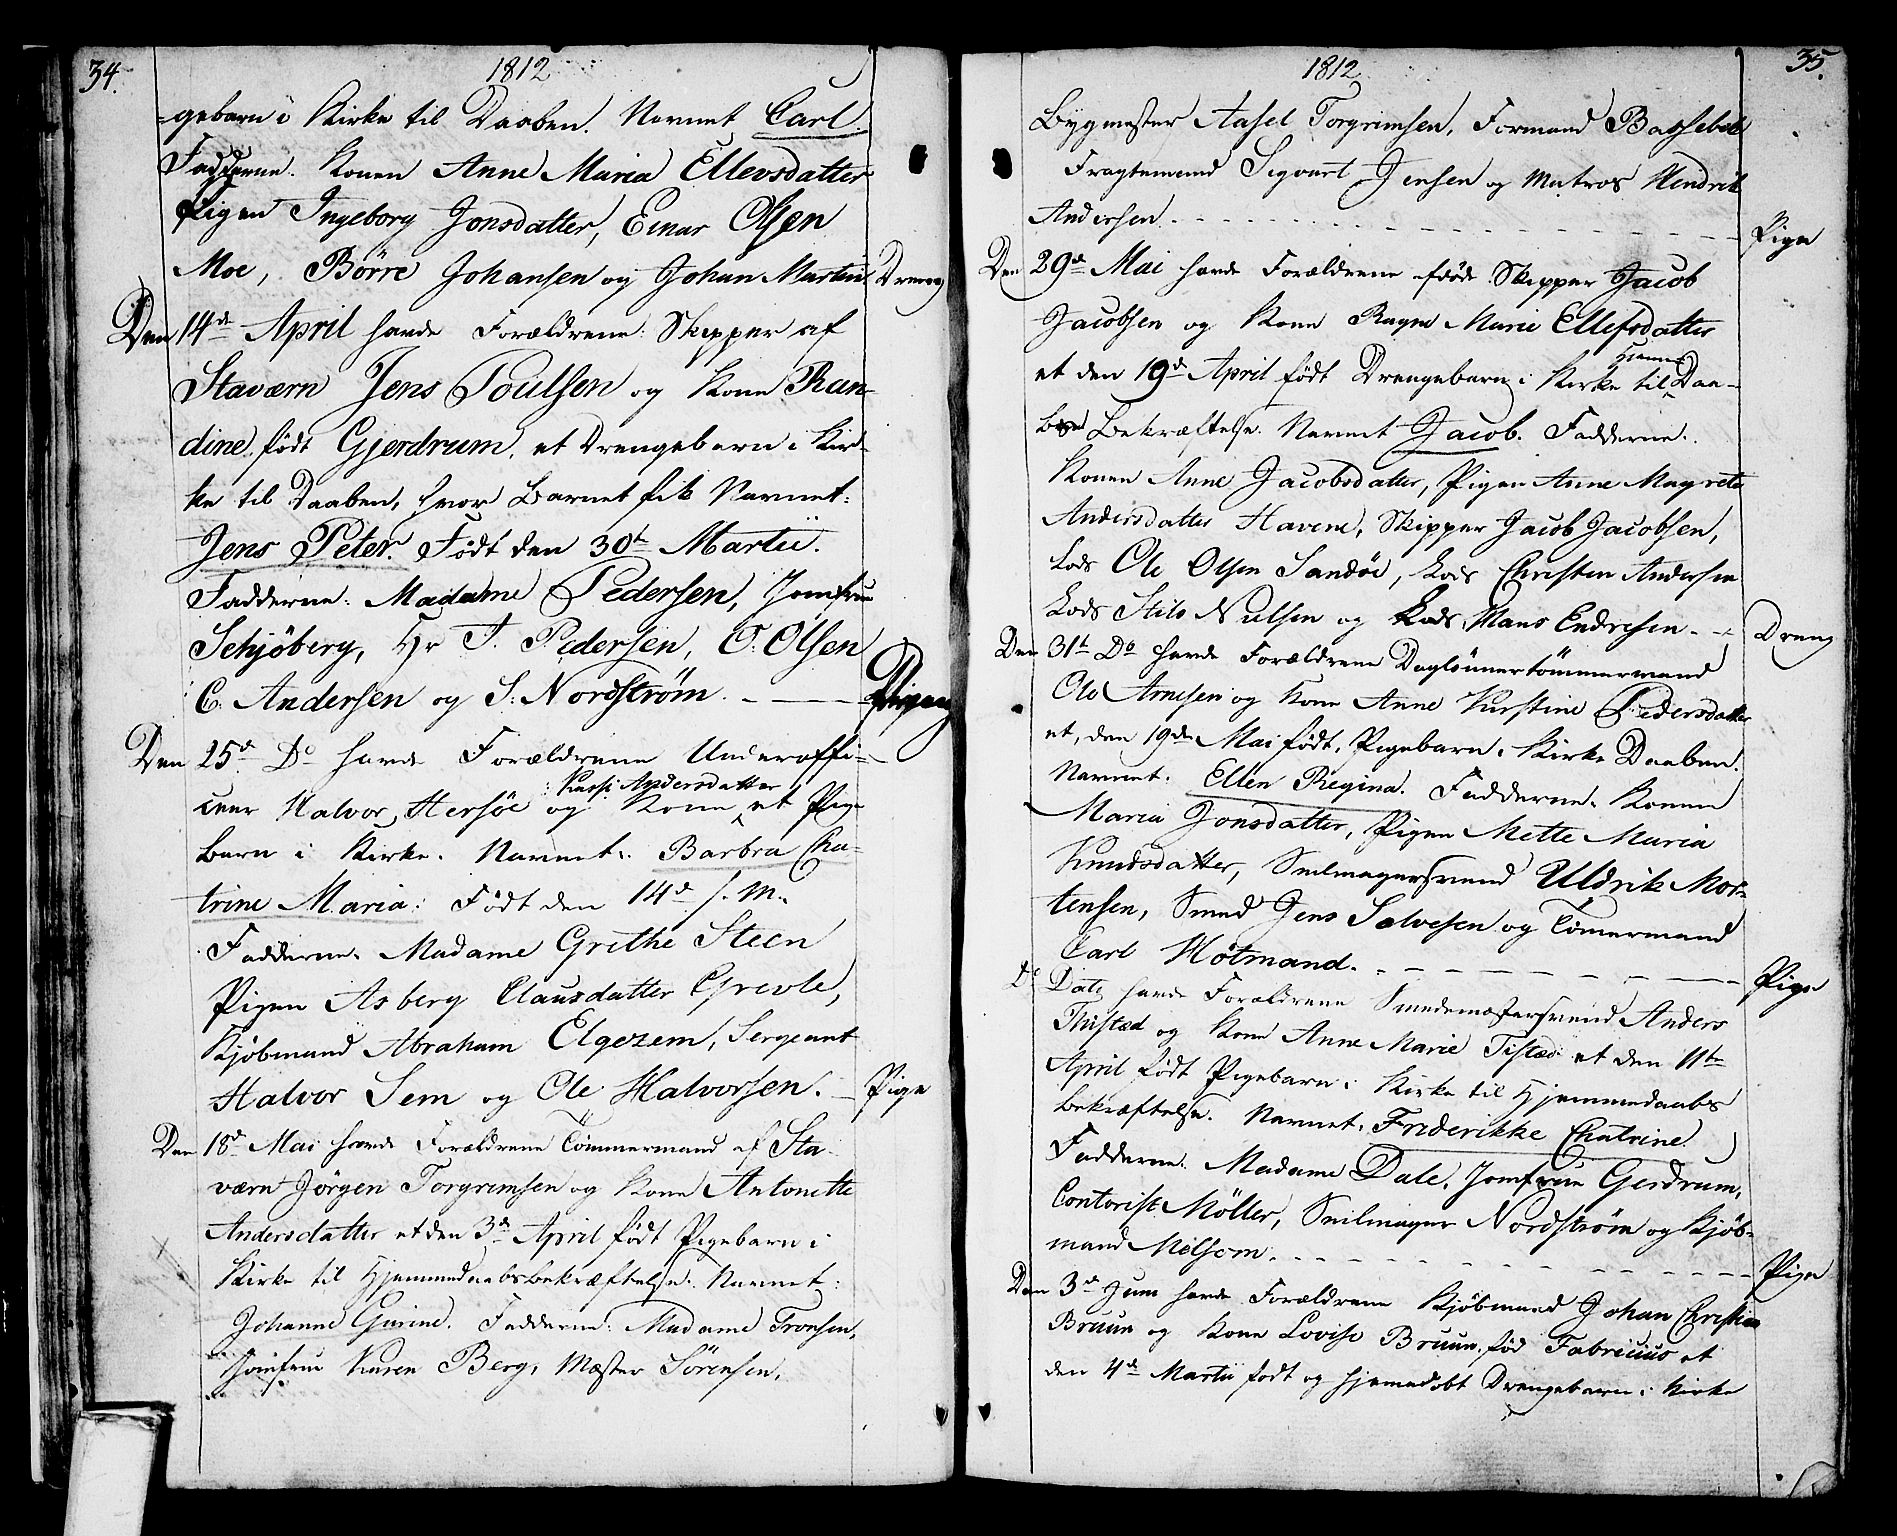 34.
1812
=gebarn i Kirke til Daaben. Navnet Carl.
Fadderne. Konen Anne Maria Ellevsdatter
Pigen Ingeborg Jonsdatter, Einar Olsen
Moe, Börre Johansen og Johan Martin. Dreng
Den 14de April havde Forældrene: Skipper af
Staværn Jens Poulsen og Kone Ran-
dine, födt Gjerdrum, et Drengebarn i Kir-
ke til Daaben, hvor Barnet fik Navnet:
Jens Peter. Födt den 30te Martii.
Fadderne: Madame Pedersen, Jomfrue
Schjöberg, Hr T. Pedersen, O: Olsen
C. Andersen og S: Nordström. - Dreng
Den 25de Do havde Forældrene Underoffi-
Andersdatter
ceer Halvor Hersöe og Kone et Pige
Barn i Kirke. Navnet: Barbra Cha-
trine Maria: Födt den 14de s. M.
Fadderne. Madame Grethe Steen
Pigen Asberg Clausdatter Grevle,
Kjöbmand Abraham Elgezem, Sergeant
Halvor Sem og Ole Halvorsen. - Pige
Den 18de Mai havde Forældrene Tömmermand af Sta-
værn Jörgen Torgrimsen og Kone Antonette
Andersdatter et den 3de April födt Pigebarn i
Kirke til Hjemmedaabs bekræftelse. Navnet:
Johanne Gurine. Fadderne: Madame Tronsen,
Jomfrue Karen Berg, Mæster Sörensen,
35.
1812
Bygmester Aasel Torgrimsen, Formand Basseboe
Fragtemand Sigvart Jensen og Matros Hendrik
Andersen. - - - Pige
Den 29de Mai havde Forældrene Skipper Jacob
Jacobsen og Kone Ragne Marie Ellefsdatter
Hjemme
et den 19de April födt Drengebarn i Kirke til Daa-
bs Bekræftelse. Navnet Jacob. Fadderne.
Konen Anne Jacobsdatter, Pigen Anne Magrete
Andersdatter Havene, Skipper Jacob Jacobsen,
Lods Ole Olsen Sandöe, Lods Christen Andersen
Lods Nielsen og Lods Hans Endresen - - Dreng
Den 31te Do havde Forældrene Daglönnertömmermand
Ole Arnesen og Kone Anne Kirstine Pedersdatter
et, den 19de Mai födt, Pigebarn i Kirke Daaben.
Navnet. Ellen Regina. Fadderne. Konen
Maria Jonsdatter, Pigen Mette Maria
Knudsdatter, Seilmagersvend Uldrik Mor-
tensen, Smed Jens Salvesen og Tömermand
Carl Hötmand. - - - Pige
Do Dato havde Forældrene Smedemestersvend Anders
Thistæd og Kone Anne Marie Tistæd et den 11te
April födt Pigebarn i Kirke til Hjemmedaabs
bekræftelse. Navnet, Friderikke Chatrine.
Fadderne. Madame Dale, Jomfrue Gerdrum,
Contorist Möller, Seilmager Nordström og Kjöb-
mand Melsom. - - - Pige
Den 3de Juni havde Forældrene Kjöbmand Johan Christian
Bruun og Kone Lovise Bruun, föd Fabricius et
den 4de Martii födt og hjemedöbt Drengebarn i Kirke